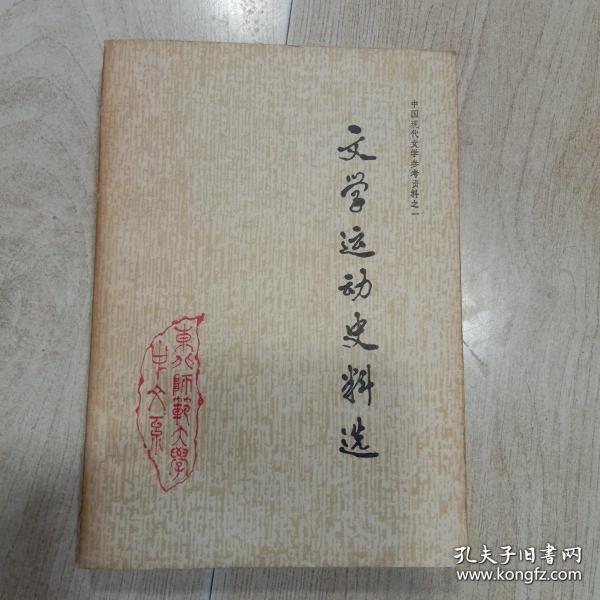 中国现代文学参考资料之一
文学运动史料选
東北師範大學
中文系
孔夫子旧书网
www.kongfz.com